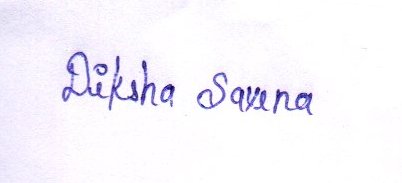 Diksha Saxena